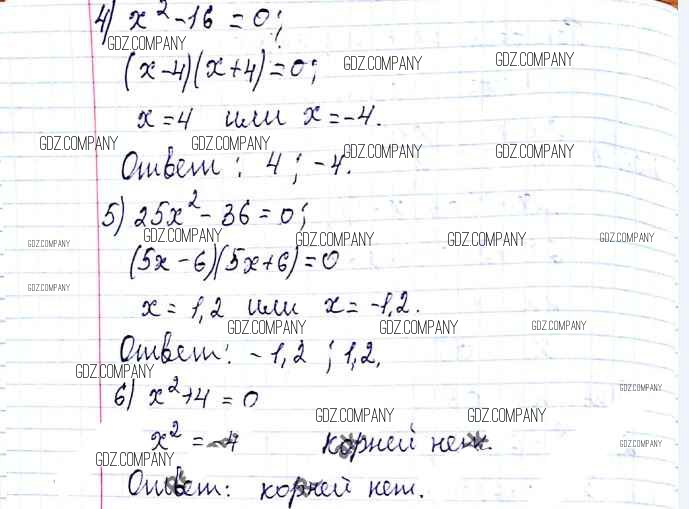 4) x² - 16 = 0;
GDZ.COMPANY
(x-4)(x+4) = 0;
GDZ.COMPANY GDZ.COMPANY
x = 4 или x = -4.
GDZ.COMPANY GDZ.COMPANY GDZ.COMPANY GDZ.COMPANY
Ответ: 4; -4.
5) 25x² - 36 = 0;
GDZ.COMPANY GDZ.COMPANY GDZ.COMPANY GDZ.COMPANY GDZ.COMPANY
(5x - 6)(5x + 6) = 0
GDZ.COMPANY
x = 1,2 или x = -1,2.
GDZ.COMPANY GDZ.COMPANY GDZ.COMPANY
Ответ: -1,2; 1,2.
GDZ.COMPANY
6) x² + 4 = 0
GDZ.COMPANY
GDZ.COMPANY GDZ.COMPANY
x² = -4 корней нет.
GDZ.COMPANY
GDZ.COMPANY
Ответ: корней нет.